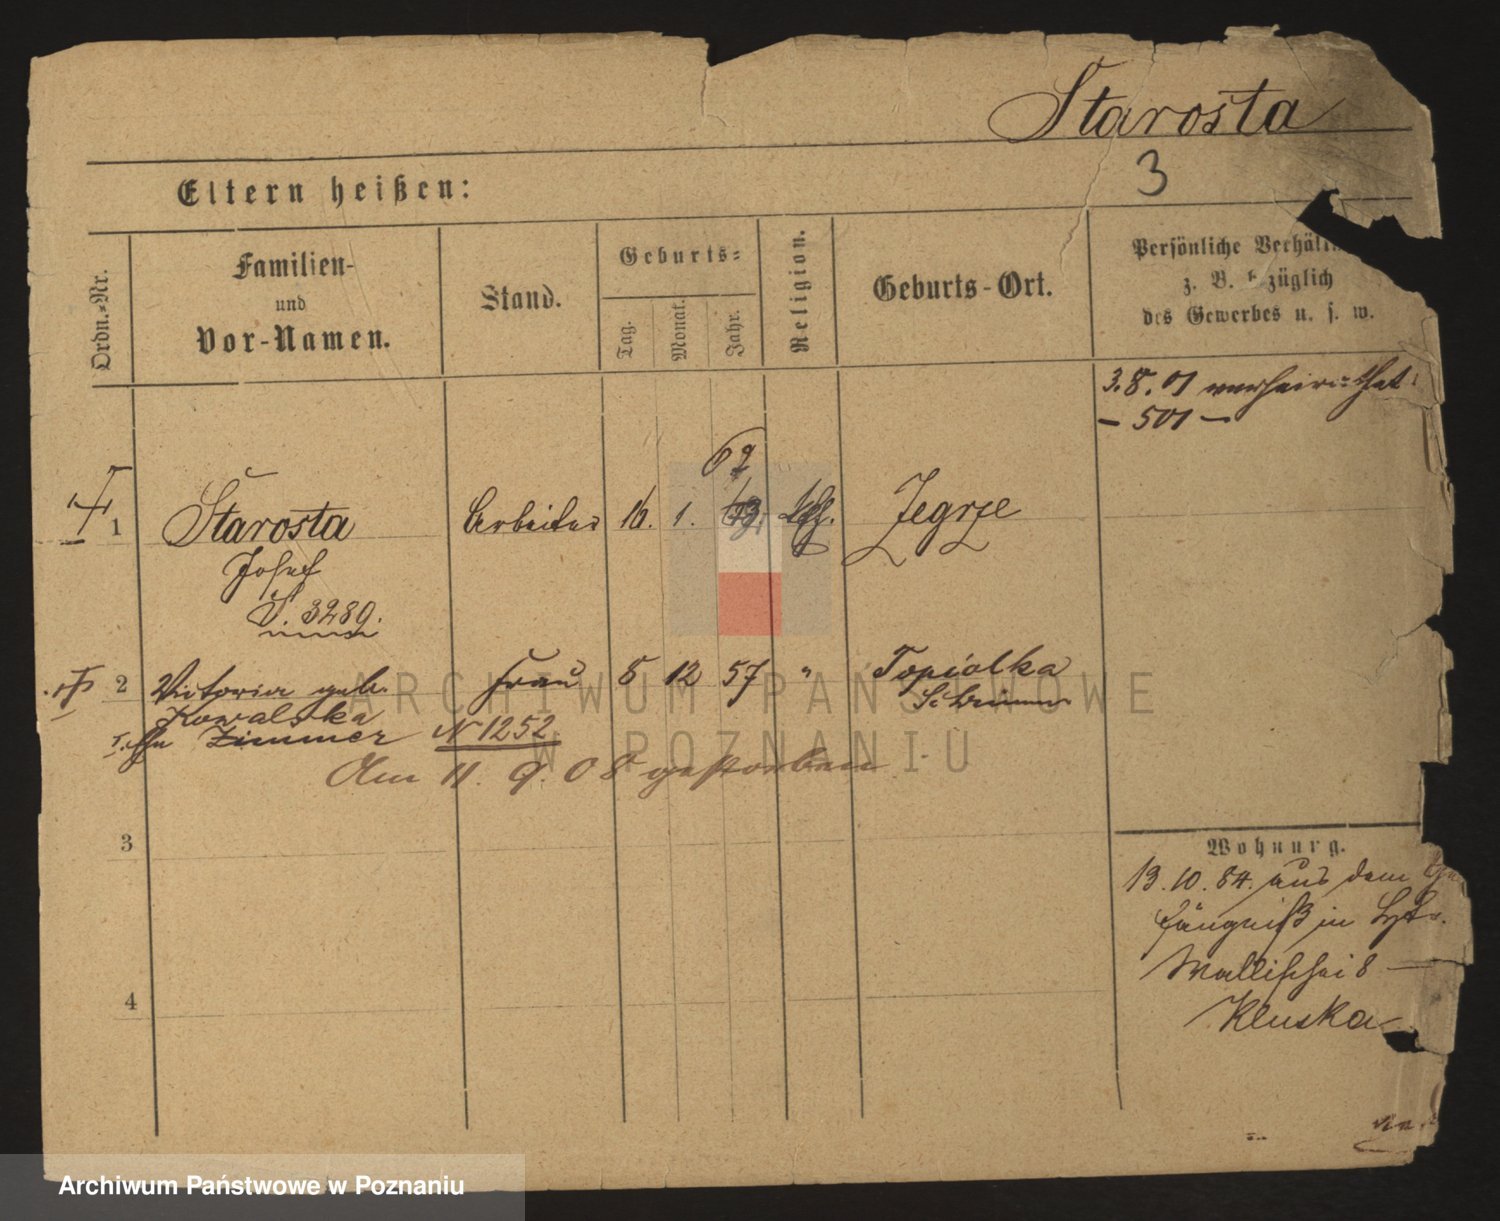 Starosta
3
Eltern heißen:
Ordn.-Nr.
Familien-
und
Vor-Namen.
Stand.
Geburts-
Tag.
Monat.
Jahr.
Religion.
Geburts-Ort.
Persönliche Verhält
z. B. b züglich
des Gewerbes u. s. w.
3.8.01 verheirathet
– 501 –
62
1 Starosta Arbeiter 16. 1. kth. Zegrze
Josef
S. 3289.
2 Victoria geb. Frau 8 12 57 " Topialka
Kowalska Schrimm
Zimmer N 1252
Am 11. 9. 08 gestorben
3
4
Wohnung.
13.10.84. aus dem Ge
fängniß in
Wallischei 8 –
Kluska
ARCHIWUM PAŃSTWOWE
W POZNANIU
Archiwum Państwowe w Poznaniu